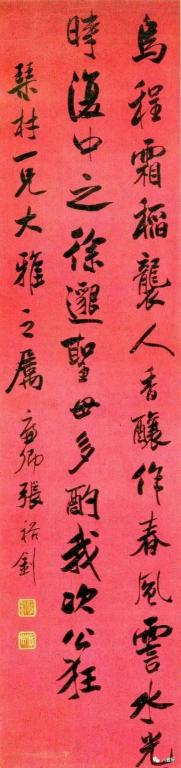 烏程霜稻襲人香釀作春風霅水光
時復中之徐邈聖毋多酌我次公狂
琹村一兄大雅之屬 廉卿張裕釗